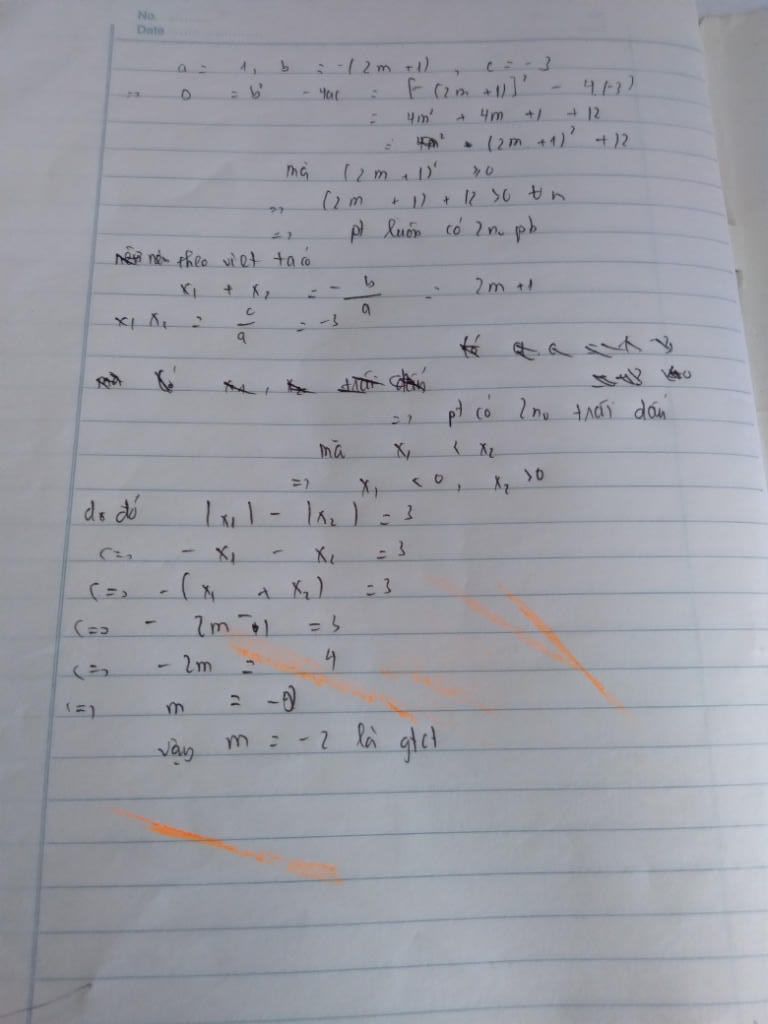 No.
Date
a = 1, b = -(2m+1), c = -3
=> Δ = b² - 4ac = [-(2m+1)]² - 4.(-3)
= 4m² + 4m + 1 + 12
= (2m+1)² + 12
mà (2m+1)² ≥0
=> (2m+1) + 12 >0 ∀m
=> pt luôn có 2n₀ pb
nên theo viet ta có
x₁ + x₂ = -b/a = 2m+1
x₁x₂ = c/a = -3
=> pt có 2n₀ trái dấu
mà x₁ < x₂
=> x₁ < 0, x₂ >0
do đó |x₁| - |x₂| = 3
<=> - x₁ - x₂ = 3
<=> -(x₁ + x₂) = 3
<=> - 2m - 1 = 3
<=> - 2m = 4
<=> m = -2
vậy m = -2 là gtct